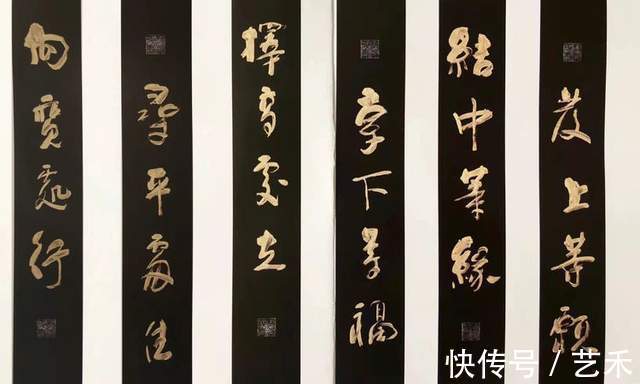 發上等願
結中等緣
享下等福
擇高處立
尋平處住
向寬處行
快传号 / 艺禾